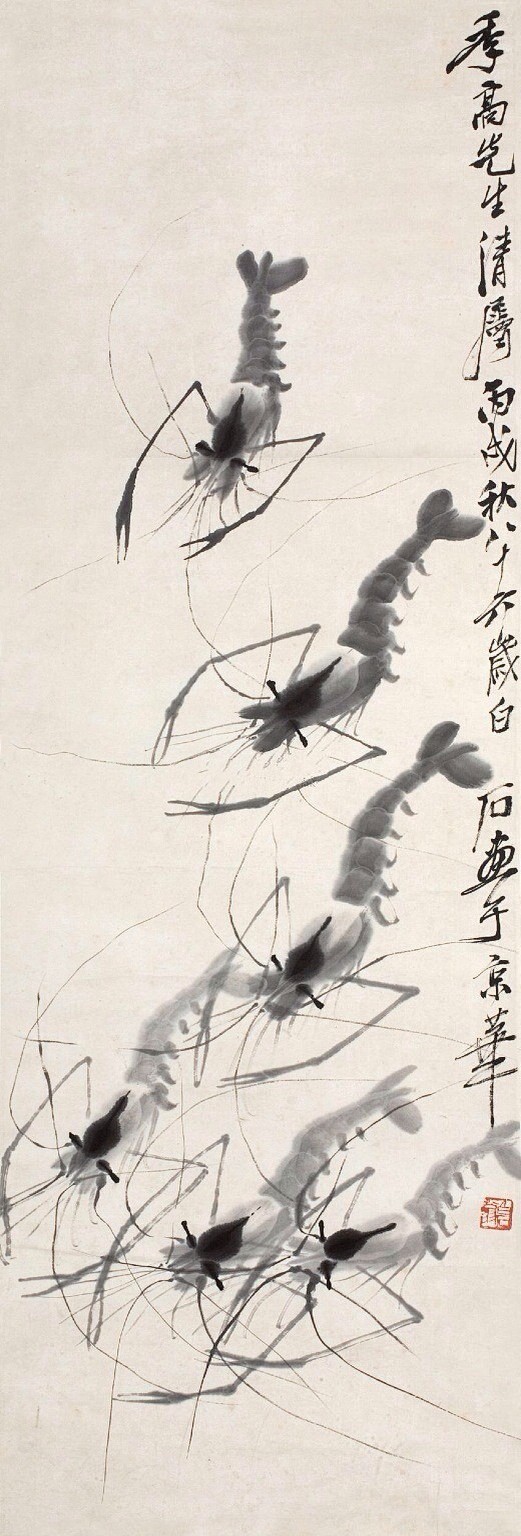 季高先生清屬丙戌秋八十六歲白石畫于京華